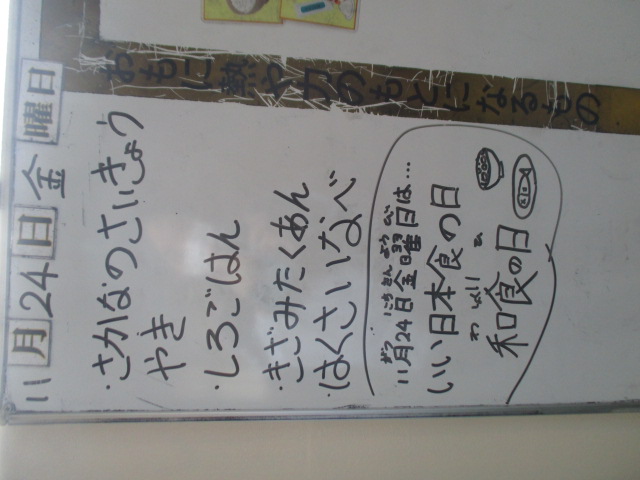 11月24日金曜日
・さかなのさいきょう
やき
・しろごはん
・きざみたくあん
はくさいなべ
がつ にち きん よう び
11月24日金曜日は…
いい日本食の日
わ しょく ひ
和食の日
おもに熱や力のもとになるもの